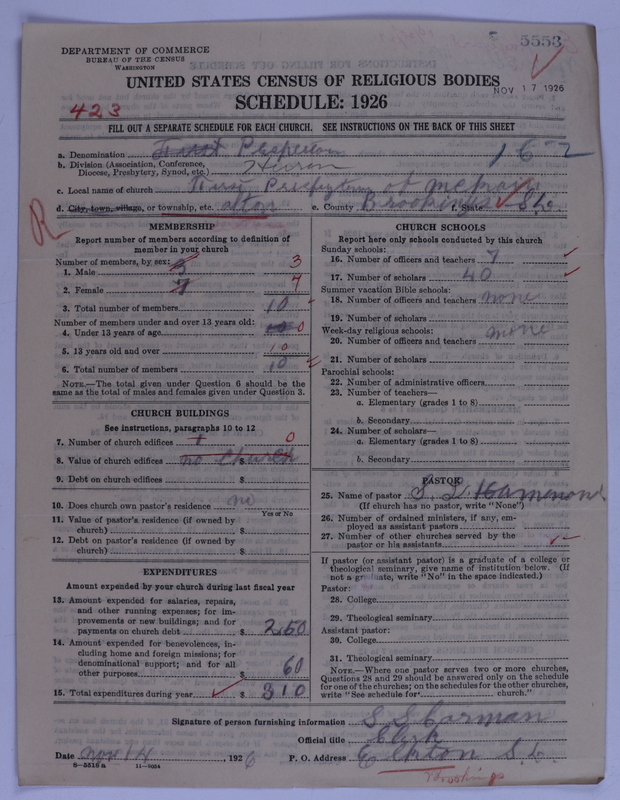 5553
DEPARTMENT OF COMMERCE
BUREAU OF THE CENSUS
WASHINGTON
UNITED STATES CENSUS OF RELIGIOUS BODIES
NOV 17 1926
SCHEDULE: 1926
423
FILL OUT A SEPARATE SCHEDULE FOR EACH CHURCH. SEE INSTRUCTIONS ON THE BACK OF THIS SHEET
a. Denomination
162
b. Division (Association, Conference, Diocese, Presbytery, Synod, etc.) Huron
c. Local name of church Presbytery of
d. City, town, village, or township, etc. alton e. County Brookings f. State S.D.
R
MEMBERSHIP
Report number of members according to definition of member in your church
Number of members, by sex:
1. Male 3 3
2. Female 7 7
3. Total number of members 10
Number of members under and over 13 years old:
4. Under 13 years of age 10 0
5. 13 years old and over 10
6. Total number of members 10
NOTE.—The total given under Question 6 should be the same as the total of males and females given under Question 3.
CHURCH BUILDINGS
See instructions, paragraphs 10 to 12
7. Number of church edifices 1 0
8. Value of church edifices no Church $
9. Debt on church edifices $
10. Does church own pastor's residence no
Yes or No
11. Value of pastor's residence (if owned by church) $
12. Debt on pastor's residence (if owned by church) $
EXPENDITURES
Amount expended by your church during last fiscal year
13. Amount expended for salaries, repairs, and other running expenses; for improvements or new buildings; and for payments on church debt $ 250
14. Amount expended for benevolences, including home and foreign missions; for denominational support; and for all other purposes $ 60
15. Total expenditures during year $ 310
CHURCH SCHOOLS
Report here only schools conducted by this church
Sunday schools:
16. Number of officers and teachers 7
17. Number of scholars 40
Summer vacation Bible schools:
18. Number of officers and teachers none
19. Number of scholars
Week-day religious schools:
20. Number of officers and teachers none
21. Number of scholars
Parochial schools:
22. Number of administrative officers
23. Number of teachers—
a. Elementary (grades 1 to 8)
b. Secondary
24. Number of scholars—
a. Elementary (grades 1 to 8)
b. Secondary
PASTOR
25. Name of pastor
(If church has no pastor, write "None")
26. Number of ordained ministers, if any, employed as assistant pastors
27. Number of other churches served by the pastor or his assistants
If pastor (or assistant pastor) is a graduate of a college or theological seminary, give name of institution below. (If not a graduate, write "No" in the space indicated.)
Pastor:
28. College
29. Theological seminary
Assistant pastor:
30. College
31. Theological seminary
NOTE.—Where one pastor serves two or more churches, Questions 28 and 29 should be answered only on the schedule for one of the churches; on the schedules for the other churches, write "See schedule for church."
Signature of person furnishing information S. S. Corman
Official title Clerk
Date Nov 14, 1926 P. O. Address Elkton S.D.
8—5518 a 11—9054
Brookings